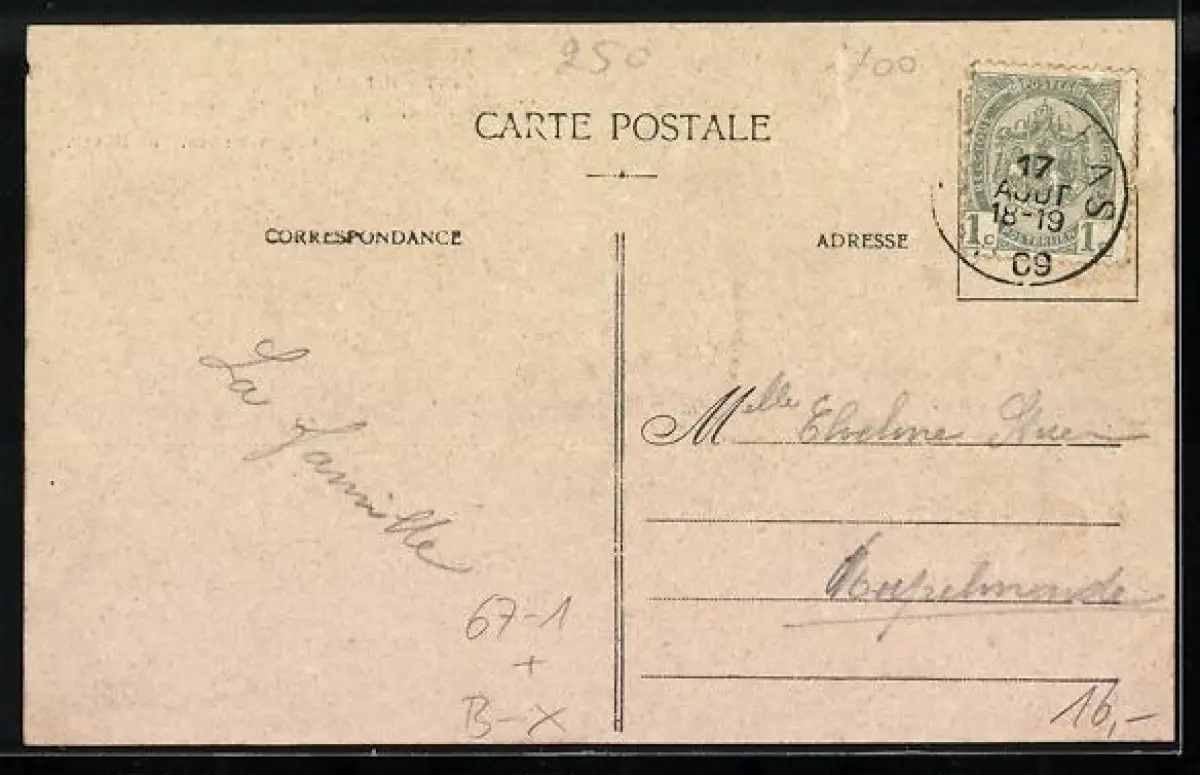 250
100
CARTE POSTALE
POSTES
1c 1c
AS
17
AOUT
18-19
09
CORRESPONDANCE
ADRESSE
La famille
Melle
Rupelmonde
67-1
+
B-X
16,-